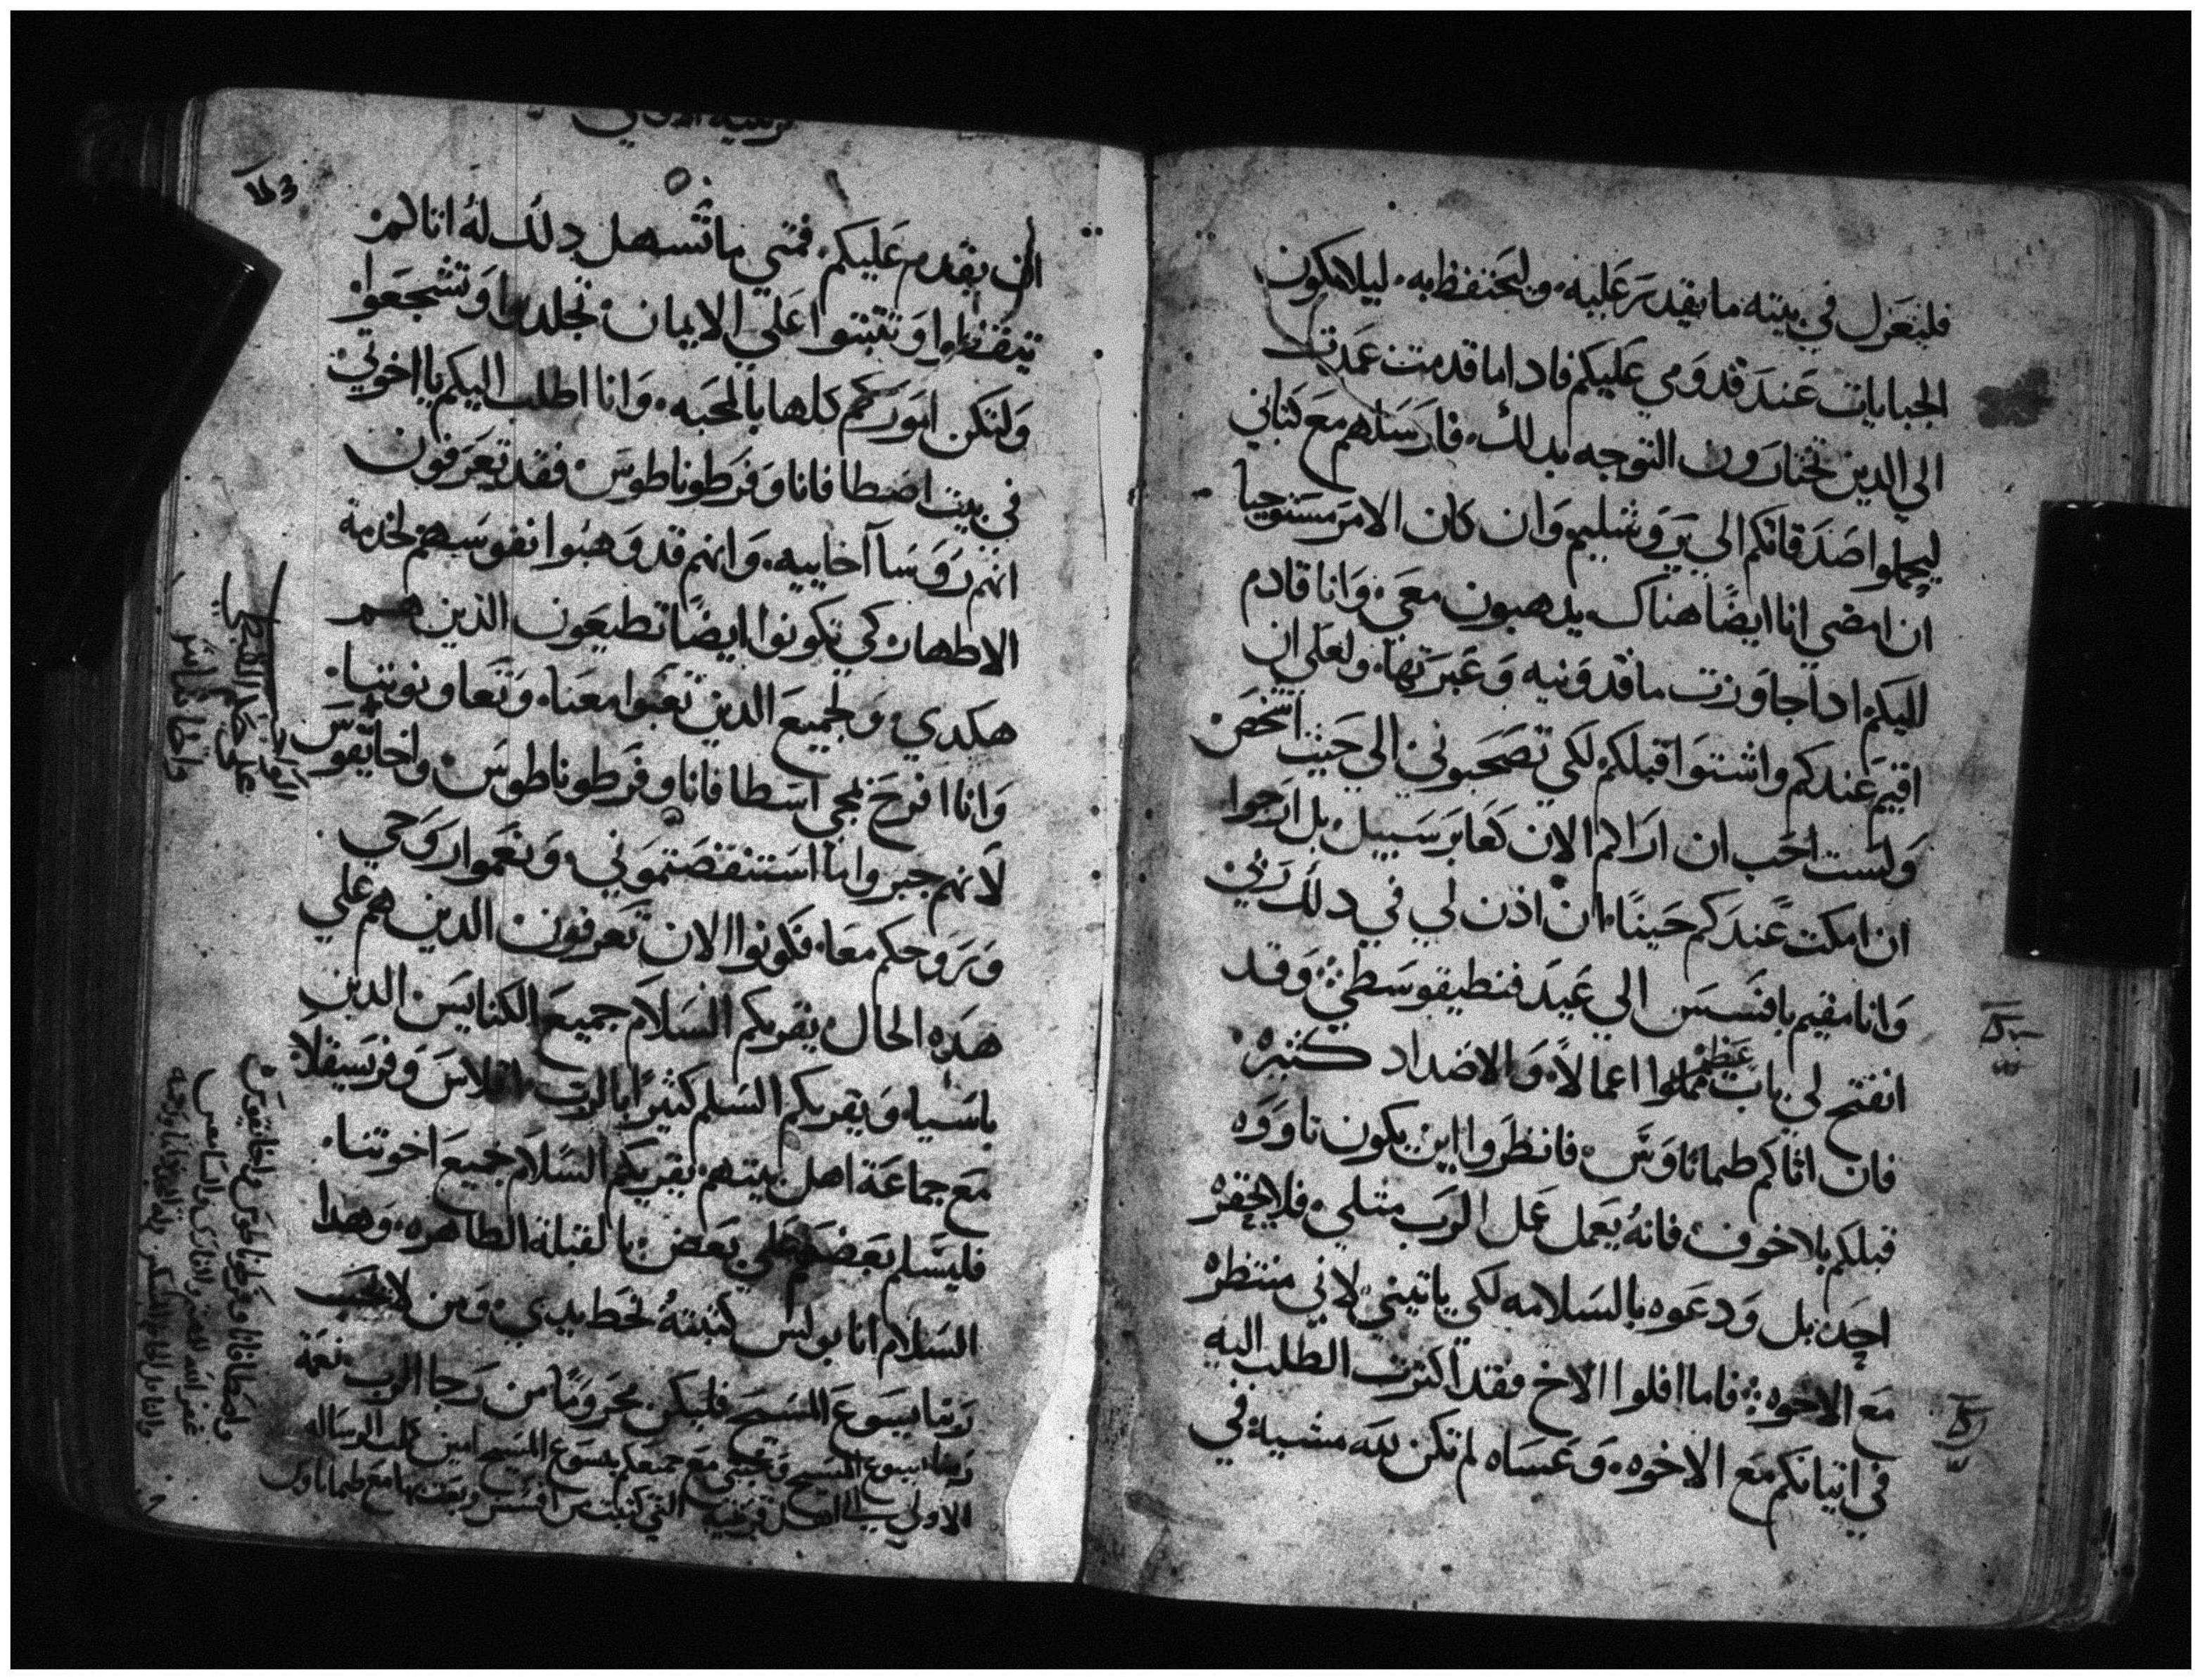 فليعزل في بيته ما يقدر عليه. وليحتفظ به. ليلا تكون
الجبايات عند قدومي عليكم فاد اما قدمت عمدت
الي الدين تختارون التوجه بدلك. فارسلهم مع كتابي
ليحملوا اصدقاتكم الي يروشليم وان كان الامر مستوجبا
ان امضي انا ايضًا هناك يدهبون معي. وانا قادم
اليكم ادا جاوزت ماقدونيه وعبرتها. ولعلي ان
اقيم عندكم واشتوا قبلكم لكي تصحبوني الي حيث اشخص
ولست احب ان اراكم الان كعابر سبيل. بل ارجوا
ان امكت عندكم حينًا. ان اذن لي في دلك ربي
وانا مقيم بافسس الي عيد فنطيقوسطي وقد
انفتح لي باب عظيم مملوا اعمالاً. والاضداد كثيره.
فان اتاكم طيماتاوس. فانظروا اين يكون تاووه
قبلكم بلا خوف فانهُ يعمل عمل الرب متلي. فلا يحقره
احد بل ودعوه بالسلامه لكي ياتيني لاني منتظره
مع الاخوه: فاما افلوا الاخ فقد اكترت الطلب اليه
في اتيانكم مع الاخوه. وعساه لم تكن لله مشية في
ان يقدم عليكم. فمتي ما تسهل دلك لهُ اتاكم
تيقظوا وتثبتوا علي الايمان. تجلدوا وتشجعوا
ولتكن اموركم كلها بالمحبه. وانا اطلب اليكم يا اخوتي
في بيت اصطافانا وفرطوناطوس. فقد تعرفون
انهم روسا آخاييه. وانهم قد وهبوا نفوسهم لخدمة
الاطهار. كي تكونوا ايضًا تطيعون الذين هم
هكدي. ولجميع الدين تعبوا معنا. وتعاونوننا.
وانا افرح بمجي اسطافانا وفرطوناطوس. واخاييقوس
لانهم جبروا ما استنقصتموني. ونعموا روحي
وبروحكم معا. فكونوا الان تعرفون الدين هم علي
هده الحال يقريكم السلام جميع الكنايس الدين
باسيا. ويقريكم السلم كثيرًا بالرب اقلاس وفرسيقلا
مع جماعة اهل بيتهم يقريكم السلام جميع اخوتنا.
فليسلم بعضكم علي بعض بالقبلة الطاهره. وهدا
السلام انا بولس كتبتهُ بخط يدي. ومن لا يحب
ربنا يسوع المسيح فليكن محرومًا من رجا الرب نعمة
ربنا يسوع المسيح ومحبتي مع جميعكم بيسوع المسيح امين كملت الرساله
الاولي الي اهل قرنتيه التي كتبت من افسس وبعث بها مع طيماتاوس